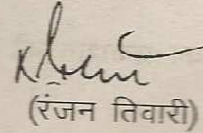 (रंजन तिवारी)